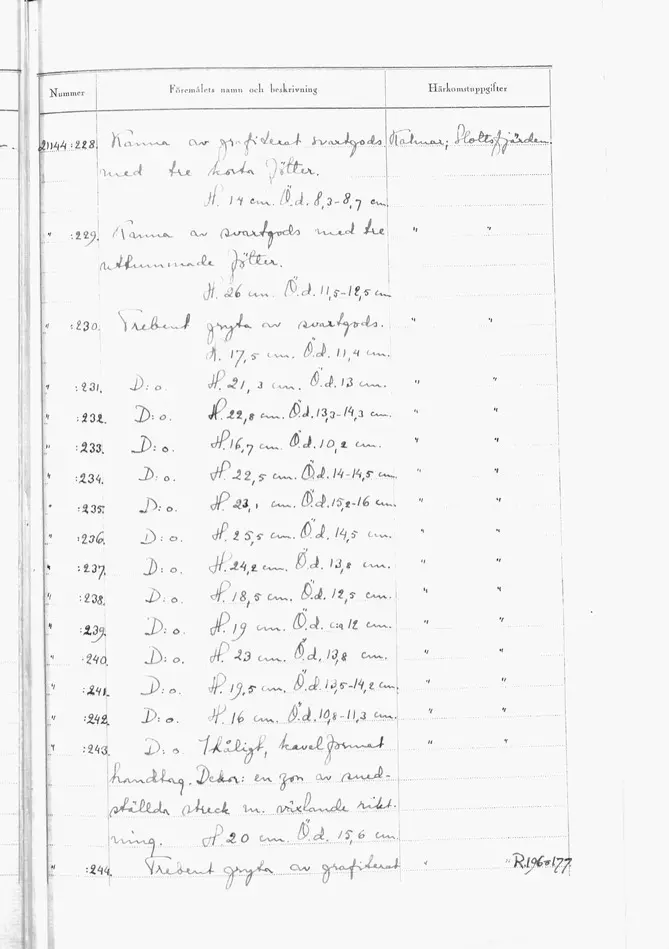 Nummer Föremålets namn och beskrivning Härkomstuppgifter
21144:228. Kanna av grafiterat svartgods Kalmar; Slottsfjärden.
med tre korta fötter.
H. 14 cm. Ö.d. 8,3-8,7 cm.
" :229. Kanna av svartgods med tre " "
utkummade fötter.
H. 26 cm. Ö.d. 11,5-12,5 cm
" :230. Trebent gryta av svartgods. " "
H. 17,5 cm. Ö.d. 11,4 cm.
" :231. D:o. H. 21,3 cm. Ö.d. 13 cm. " "
" :232. D:o. H. 22,8 cm. Ö.d. 13,3-14,3 cm. " "
" :233. D:o. H. 16,7 cm. Ö.d. 10,2 cm. " "
" :234. D:o. H. 22,5 cm. Ö.d. 14-14,5 cm. " "
" :235. D:o. H. 23,1 cm. Ö.d. 15,2-16 cm. " "
" :236. D:o. H. 25,5 cm. Ö.d. 14,5 cm. " "
" :237. D:o. H. 24,2 cm. Ö.d. 13,8 cm. " "
" :238. D:o. H. 18,5 cm. Ö.d. 12,5 cm. " "
" :239. D:o. H. 19 cm. Ö.d. c:a 12 cm. " "
" :240. D:o. H. 23 cm. Ö.d. 13,8 cm. " "
" :241. D:o. H. 19,5 cm. Ö.d. 13,5-14,2 cm. " "
" :242. D:o. H. 16 cm. Ö.d. 10,8-11,3 cm. " "
" :243. D:o. Ihåligt, kavelformat " "
handtag. Dekor: en zon av sned-
ställda streck m. växlande rikt-
ning. H. 20 cm. Ö.d. 15,6 cm.
" :244. Trebent gryta av grafiterat " " R.196=177.